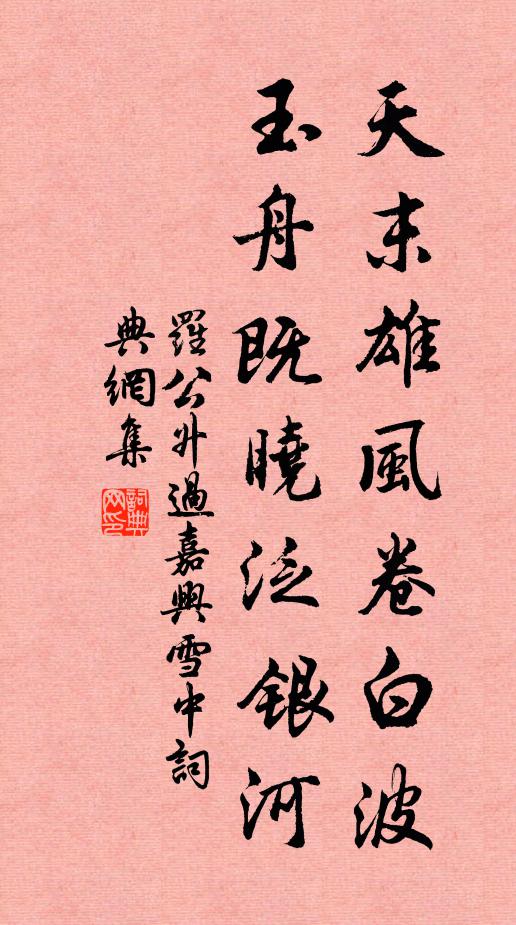 天末雄風卷白波
玉舟既曉泛銀河
羅公升過嘉興雪中詞
典網集
詞典網印